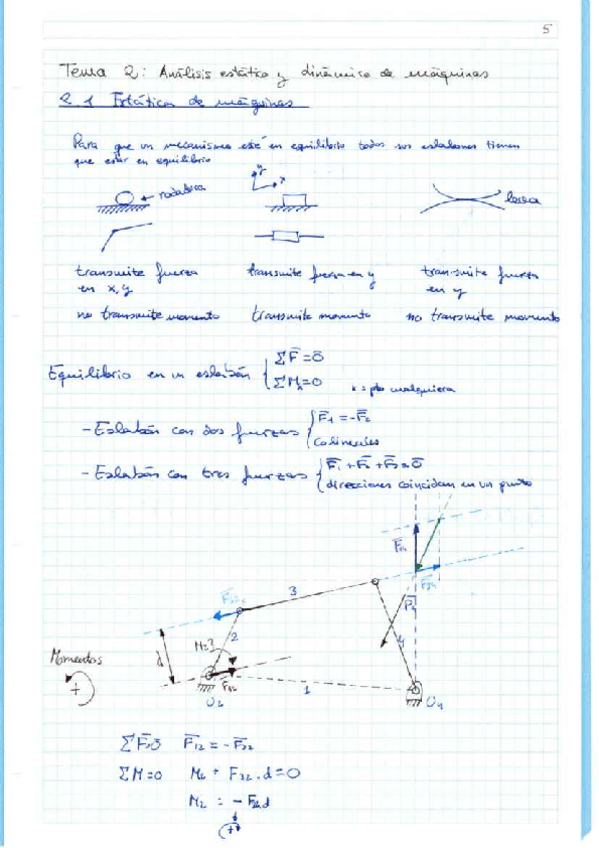 5
Tema 2: Análisis estático y dinámico de máquinas
2.1 Estática de máquinas
Para que un mecanismo esté en equilibrio todos sus eslabones tienen
que estar en equilibrio
rodadura
y
x
leva
transmite fuerza transmite fuerza en y transmite fuerza
en x, y en y
no transmite momento transmite momento no transmite momento
Equilibrio en un eslabón { ΣF̄ = 0̄
ΣM = 0 x = pto cualquiera
- Eslabón con dos fuerzas { F̄1 = -F̄2
colineales
- Eslabón con tres fuerzas { F̄1 + F̄2 + F̄3 = 0̄
direcciones coincidan en un punto
3
P̄4
4
d
2
Momentos
+
1
O2
O4
ΣF̄=0̄ F̄12 = -F̄32
ΣM=0 M2 + F32 . d = 0
M2 = - F32.d
(+)